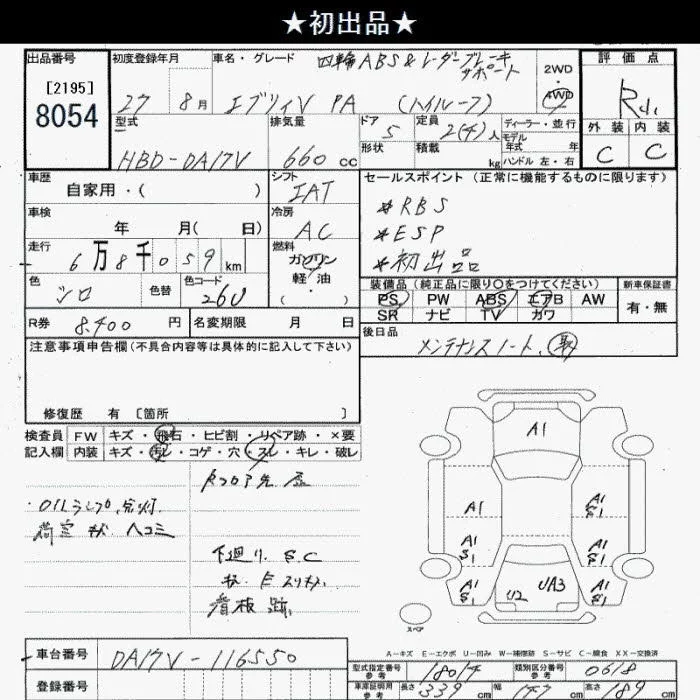 ★初出品★
出品番号
[2195]
8054
初度登録年月
27 8月
車名・グレード
四輪ABS&レーダーブレーキ
サポート
エブリイV PA (ハイルーフ)
2WD
4WD
評価点
外装 内装
C C
型式
HBD-DA17V
排気量
660 cc
ドア
5
形状
定員
2(4)人
積載
kg
ディーラー・並行
モデル
年式 年
ハンドル 左・右
車歴
自家用・( )
シフト
IAT
車検
年 月( 日)
冷房
AC
走行
6万8千059km
燃料
ガソリン
軽・油
・( )
色
シロ
色替
色コード
26U
R券
8,400 円
名変期限 月 日
セールスポイント (正常に機能するものに限ります)
*RBS
*ESP
*初出品
装備品(純正品に限り○をつけてください)
PS PW ABS エアB AW
SR ナビ TV カワ
新車保証書
有・無
後日品
メンテナンスノート、取
注意事項申告欄(不具合内容等は具体的に記入して下さい)
修復歴 有 [箇所 ]
検査員
記入欄
FW キズ・飛石・ヒビ割・リペア跡・×要
内装 キズ・汚レ・コゲ・穴・スレ・キレ・破レ
OILランプ点灯
荷室 ヘコミ
下廻り S.C
看板跡
A1
A1
A1
S1
A1
S1
A1
S1
A1
S1
A1
S1
U2
UA3
スペア
A-キズ E-エクボ U-凹み W-補修跡 S-サビ C-腐食 XX-交換済
車台番号
DA17V-116550
登録番号
型式指定番号
参考
18014
類別区分番号
参考
0618
車庫証明用
参考
長さ 339 cm
幅 147 cm
高さ 189 cm